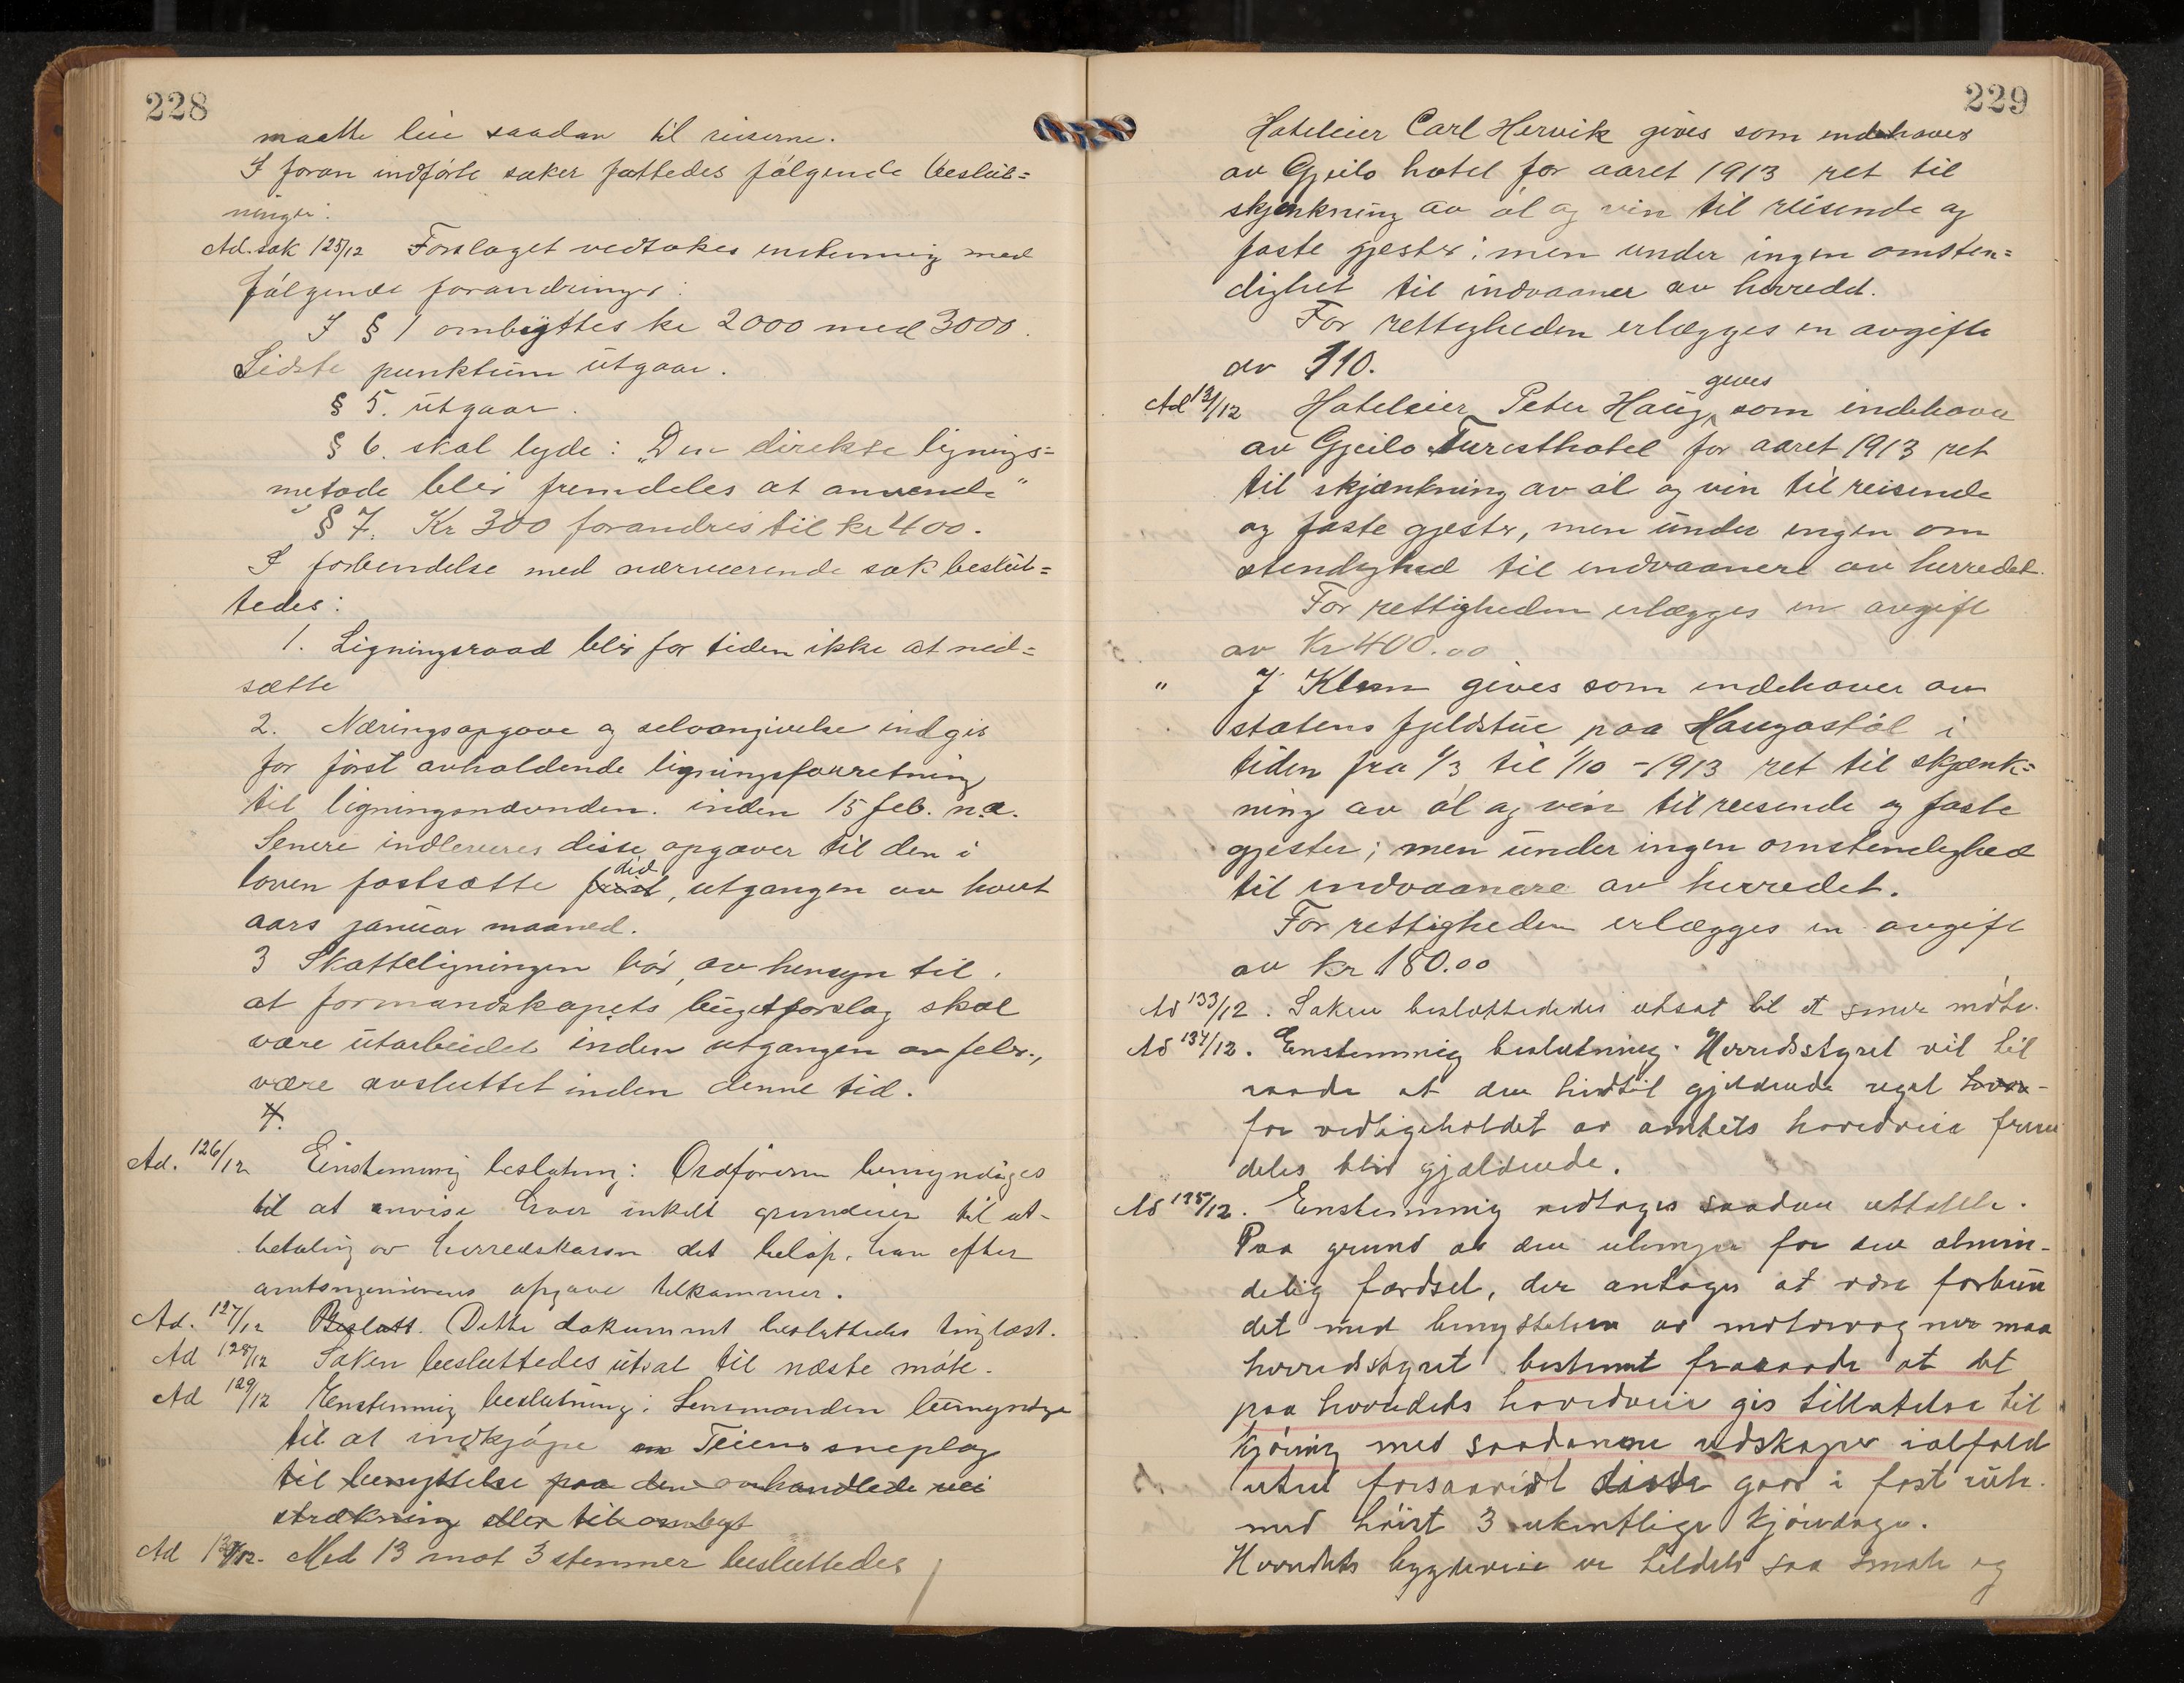 228
maatte leie saadan til reiserne.
I foran indförte saker fattedes fölgende beslut=
ninger:
Ad. sak 125/12 Forslaget vedtokes enstemmig med
fölgende forandringer:
I § 1 ombyttes kr 2000 med 3000.
Sidste punktum utgaar.
§ 5. utgaar.
§ 6. skal lyde: „Den direkte lignings=
metode blir fremdeles at anvende"
§ 7. Kr 300 forandres til kr 400.
I forbindelse med nærværende sak beslut=
tedes:
1. Ligningsraad blir for tiden ikke at ned=
sætte
2. Næringsopgave og selvangivelse indgis
for först avholdende ligningsforretning
til ligningsnævnden. inden 15 feb. n.a.
Senere indleveres disse opgaver til den i
loven fastsatte frist did, utgangen av hvert
aars januar maaned.
3 Skatteligningen bör, av hensyn til
at formandskapets bugetforslag skal
være utarbeidet inden utgangen av febr.,
være avsluttet inden denne tid.
4.
Ad. 126/12 Einstemmig beslutning: Ordföreren bemyndiges
til at anvise hver enkelt grundeier til ut-
betaling av herredskassen det belöp, han efter
amtsingeniörens opgave tilkommer.
Ad. 127/12 Beslutt. Dette dokument besluttedes tinglæst.
Ad 128/12 Saken besluttedes utsat til næste möte.
Ad 129/12 Enstemmig beslutning: Lensmanden bemyndige
til at indkjöpe en Teiens sneplog
til benyttelse paa den omhandlede vei
strækning eller til omlegt
Ad 130/12. Med 13 mot 3 stemmer besluttedes
229
Hoteleier Carl Hervik gives som indehaver
av Gjeilo hotel for aaret 1913 ret til
skjænkning av öl og vin til reisende og
faste gjester; men under ingen omsten=
dighet til indvaaner av herredet.
For rettigheden erlægges en avgift
av 110.
Ad 131/12 Hoteleier Peter Haug gives som indehaver
av Gjeilo Turisthotel for aaret 1913 ret
til skjænkning av öl og vin til reisende
og faste gjester, men under ingen om
stendighed til indvaanere av herredet.
For rettigheden erlægges en avgift
av Kr 400.00
" J Klem gives som indehaver av
statens fjeldstue paa Haugastöl i
tiden fra 1/3 til 1/10 - 1913 ret til skjænk=
ning av öl og vin til reisende og faste
gjester; men under ingen omstendighed
til indvaanere av herredet.
For rettigheden erlægges en avgift
av kr 180.00
Ad 133/12. Saken besluttededes utsat til et senere möte.
Ad 134/12. Enstemmig beslutning. Herredsstyret vil til
raade at den hindtil gjeldende regel
for vedligeholdet av amtets hovedveie frem
deles blir gjældende.
Ad 135/12. Enstemmig vedtoges saadan uttalelse.
Paa grund av den ulempe for den almin-
delig færdsel, der antages at være forbun
det med benyttelsen av motorvogner maa
herredsstyret bestemt fraraade at det
paa herredets hovedveie gis tillatelse til
kjöring med saadanne redskaper ialfald
uten forsaavidt disse gaar i fast rute.
med höist 3 ukentlige kjöredage.
Herredets bygdeveie er tildels saa smale og